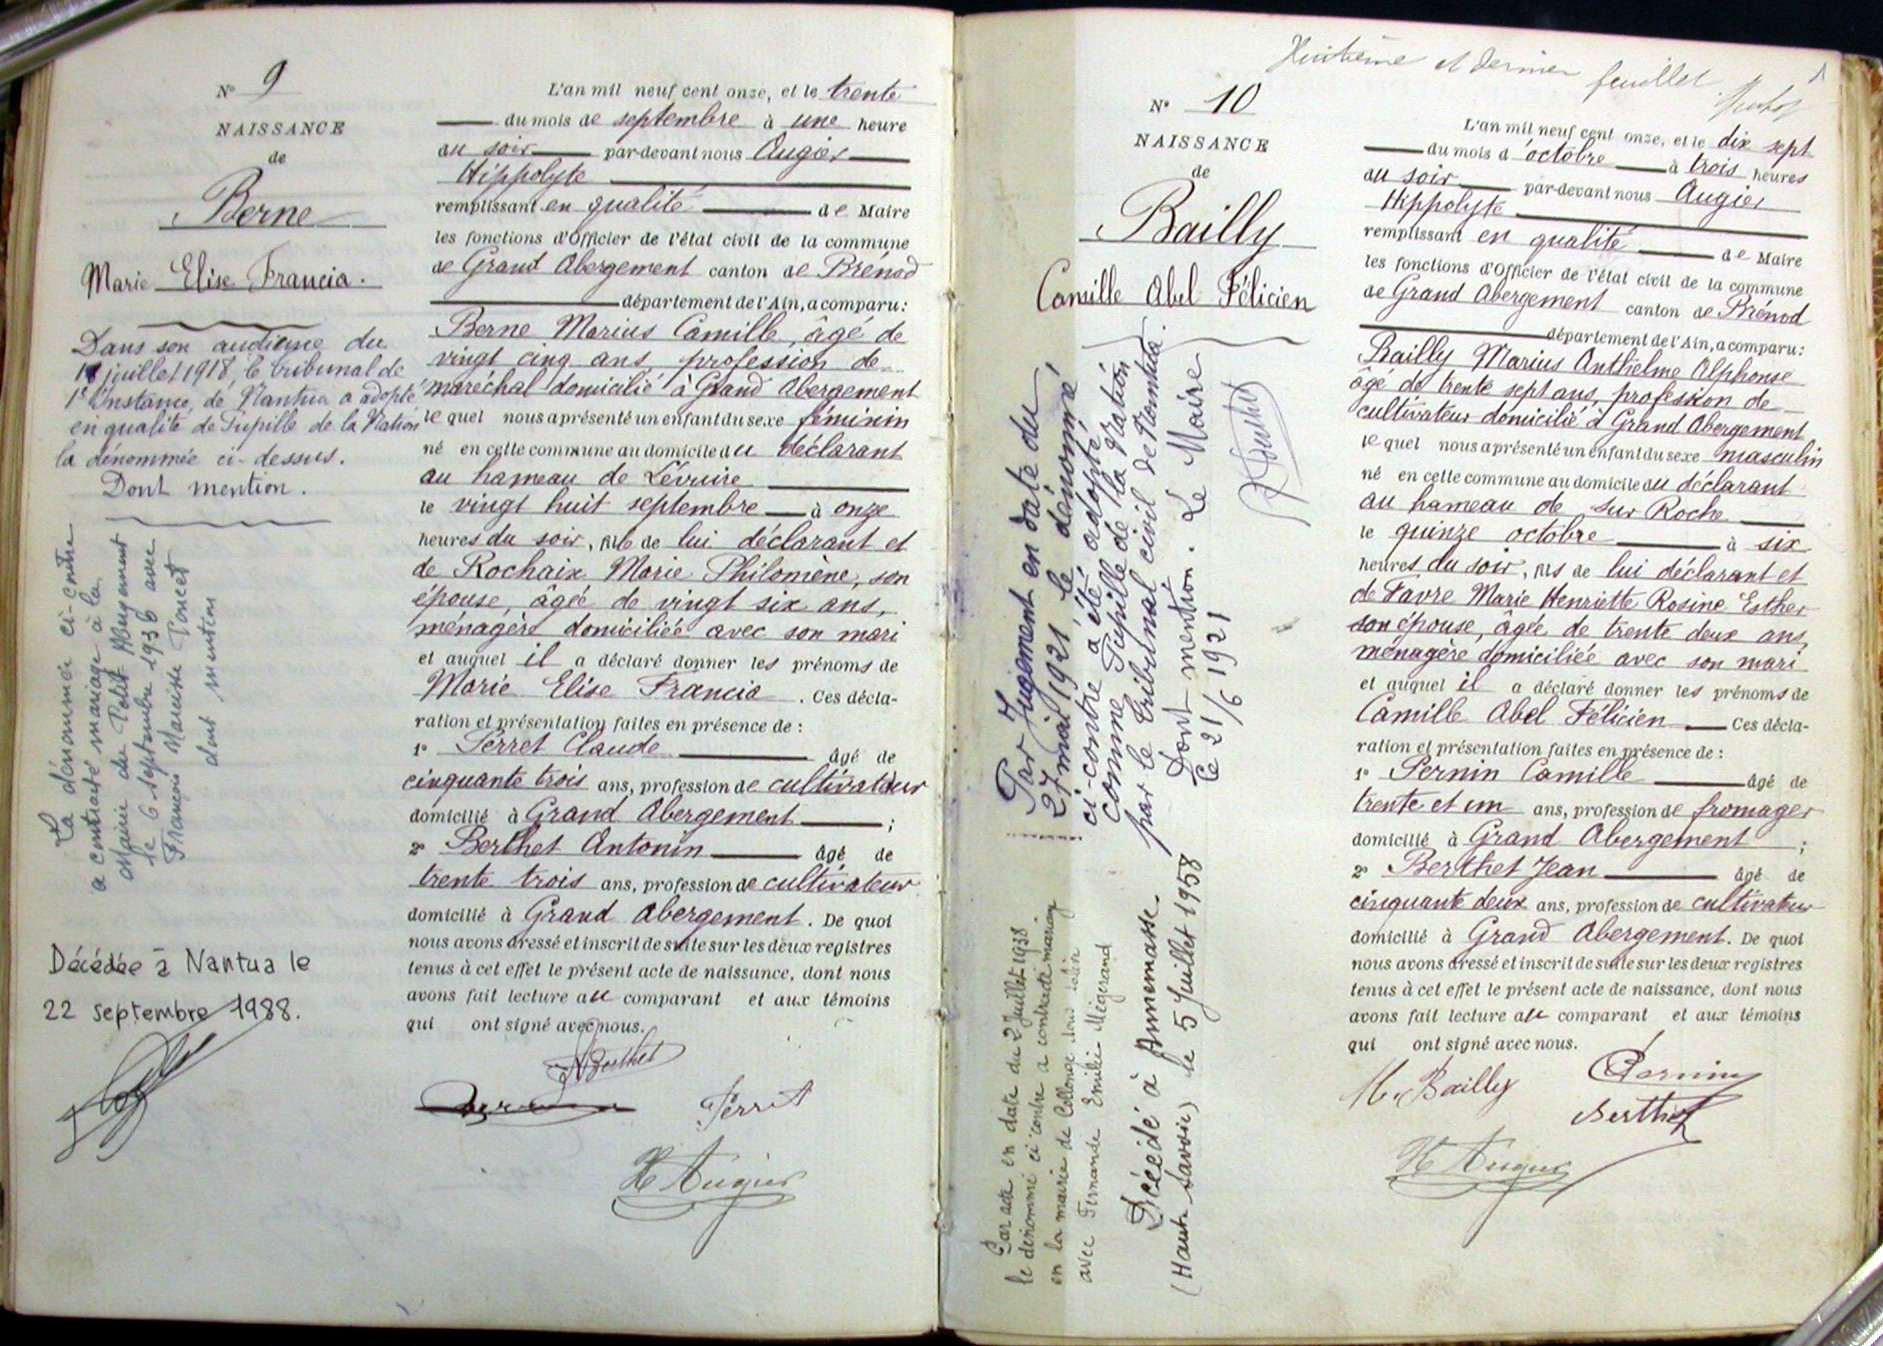 N° 9
NAISSANCE
de
Berne
Marie Elise Francia.
Dans son audience du
juillet 1918, le tribunal de
1e Instance, de Nantua a adopté
en qualité de Pupille de la Nation
la dénommée ci-dessus.
Dont mention.
La dénommée ci-contre
a contracté mariage à la
mairie du Petit Abergement
le 6 septembre 1936 avec
François Narcisse Poncet
dont mention
Décédée à Nantua le
22 septembre 1988.
L'an mil neuf cent onze, et le trente
du mois de septembre à une heure
au soir par-devant nous Augier
Hippolyte
remplissant en qualité de Maire
les fonctions d'Officier de l'état civil de la commune
de Grand Abergement canton de Brénod
département de l'Ain, a comparu:
Berne Marius Camille, âgé de
vingt cinq ans, profession de
maréchal domicilié à Grand Abergement
le quel nous a présenté un enfant du sexe féminin
né en cette commune au domicile du déclarant
au hameau de Lévruire
le vingt huit septembre à onze
heures du soir, fille de lui déclarant et
de Rochaix Marie Philomène, son
épouse, âgée de vingt six ans,
ménagère domiciliée avec son mari
et auquel il a déclaré donner les prénoms de
Marie Elise Francia. Ces décla-
ration et présentation faites en présence de:
1° Perret Claude âgé de
cinquante trois ans, profession de cultivateur
domicilié à Grand Abergement ;
2° Berthet Antonin âgé de
trente trois ans, profession de cultivateur
domicilié à Grand Abergement. De quoi
nous avons dressé et inscrit de suite sur les deux registres
tenus à cet effet le présent acte de naissance, dont nous
avons fait lecture au comparant et aux témoins
qui ont signé avec nous.
A Berthet
Berne Perret
H Augier
Huitième et dernier feuillet
N° 10
NAISSANCE
de
Bailly
Camille Abel Félicien
Par Jugement en date du
27 mai 1921 le dénommé
ci-contre a été adopté
comme Pupille de la Nation
par le tribunal civil de Nantua.
Dont mention. Le Maire
Le 21/6 1921
Par acte en date du 2 Juillet 1938
le dénommé ci contre a contracté mariage
en la mairie de Collonge sous Salève
avec Fernande Emilie Mégevand
Décédé à Annemasse
(Haute Savoie) le 5 Juillet 1958
L'an mil neuf cent onze, et le dix sept
du mois d'octobre à trois heures
au soir par-devant nous Augier
Hippolyte
remplissant en qualité de Maire
les fonctions d'Officier de l'état civil de la commune
de Grand Abergement canton de Brénod
département de l'Ain, a comparu:
Bailly Marius Anthelme Alphonse
âgé de trente sept ans, profession de
cultivateur domicilié à Grand Abergement
le quel nous a présenté un enfant du sexe masculin
né en cette commune au domicile du déclarant
au hameau de sur Roche
le quinze octobre à six
heures du soir, fils de lui déclarant et
de Favre Marie Henriette Rosine Esther
son épouse, âgée de trente deux ans,
ménagère domiciliée avec son mari
et auquel il a déclaré donner les prénoms de
Camille Abel Félicien Ces décla-
ration et présentation faites en présence de:
1° Pernin Camille âgé de
trente et un ans, profession de fromager
domicilié à Grand Abergement ;
2° Berthet Jean âgé de
cinquante deux ans, profession de cultivateur
domicilié à Grand Abergement. De quoi
nous avons dressé et inscrit de suite sur les deux registres
tenus à cet effet le présent acte de naissance, dont nous
avons fait lecture au comparant et aux témoins
qui ont signé avec nous.
M. Bailly CPernin
Berthet
H Augier